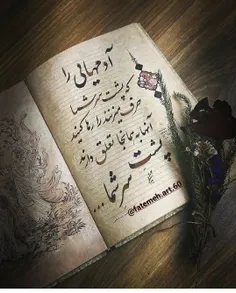 آدمهایی را
که پشت سر شما
حرف میزنند را رها کنید
آنها به همانجا تعلق دارند
پشت سر شما...
@fatemeh.art.60